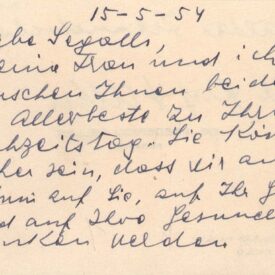 15-5-54
be Segalls,
eine Frau und ich
nschen Ihnen beide
Allerbeste zu Ihre
chzeitstag. Sie Kön
her sein, dass wir an
auf Sie, auf Ihr G
d auf Ihre Gesund
inken werden